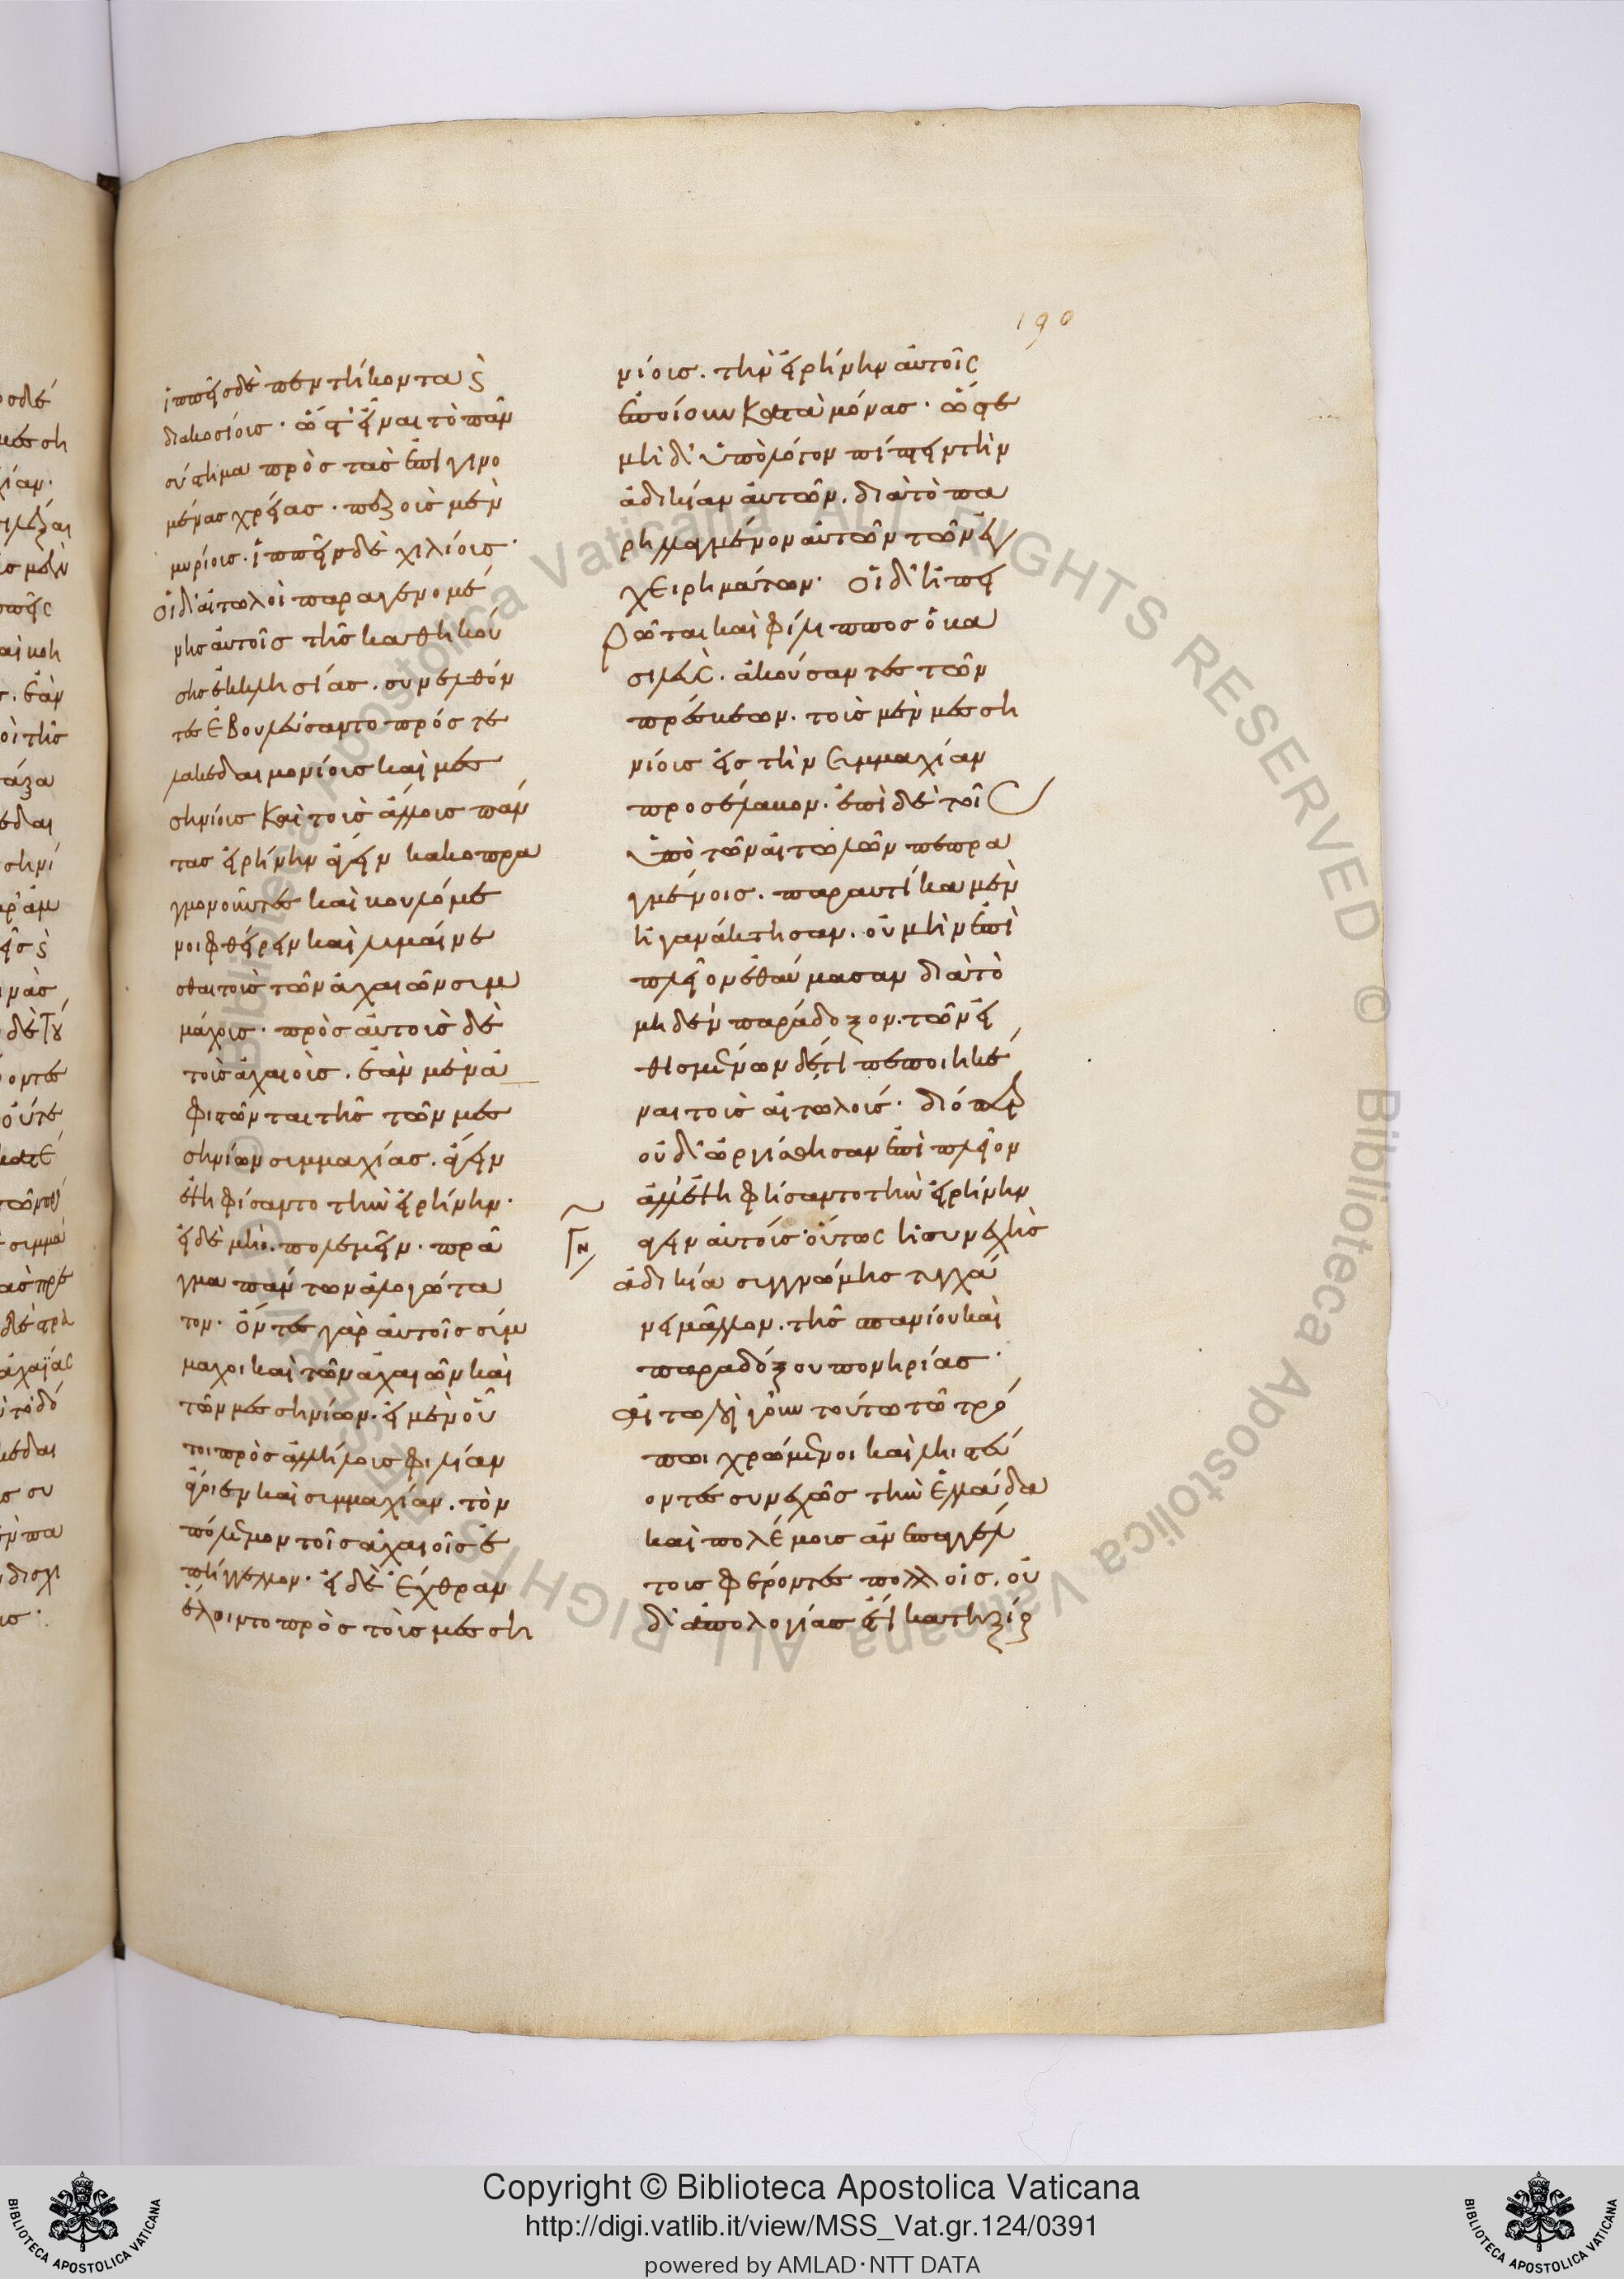 ἱππεῖς δὲ πεντήκοντα ϗ
διακοσίους· ὥστ' εἶναι τὸ πᾶν
σύστημα πρὸς τὰς ἐπιγινο
μένας χρείας· πεζοὺς μὲν
μυρίους· ἱππεῖς δὲ χιλίους·
οἱ δ' αἰτωλοὶ παραγενομέ
νης αὐτοῖς τῆς καθηκού
σης ἐκκλησίας. συνελθόν
τες ἐβουλεύσαντο πρός τε
λακεδαιμονίους καὶ μεσ
σηνίους καὶ τοὺς ἄλλους πάν
τας εἰρήνην ἄγειν κακοπρα
γμονοῦντες καὶ βουλόμε
νοι φθείρειν καὶ λυμαίνε
σθαι τοὺς τῶν ἀχαιῶν συμ
μάχους· πρὸς αὐτοὺς δὲ
τοὺς ἀχαιούς. ἐὰν μὲν ἀ
φιστῶνται τῆς τῶν μεσ
σηνίων συμμαχίας. ἄγειν
ἐψηφίσαντο τὴν εἰρήνην·
εἰ δὲ μή. πολεμεῖν· πρᾶ
γμα πάντων ἀλογώτα
τον· ὄντες γὰρ αὐτοῖς σύμ
μαχοι καὶ τῶν ἀχαιῶν καὶ
τῶν μεσσηνίων. εἰ μὲν οὗ
τοι πρὸς ἀλλήλους φιλίαν
ἄγοιεν καὶ συμμαχίαν. τὸν
πόλεμον τοῖς ἀχαιοῖς ἐ
πήγγελλον· εἰ δὲ ἔχθραν
ἕλοιντο πρὸς τοὺς μεσση
190
νίους. τὴν εἰρήνην αὐτοῖς
ἐποίουν κατὰ μόνας· ὥστε
μὴ δ' ὑπὸ λόγον πίπτειν τὴν
ἀδικίαν αὐτῶν. διὰ τὸ πα
ρηλλαγμένον αὐτῶν τῶν ἐγ
χειρημάτων· οἱ δ' ἠπει
ρῶται καὶ φίλιππος ὁ βα
σιλεὺς. ἀκούσαντες τῶν
πρέσβεων. τοὺς μὲν μεσση
νίους εἰς τὴν συμμαχίαν
προσέλαβον. ἐπὶ δὲ τοῖς
ὑπὸ τῶν αἰτωλῶν πεπρα
γμένοις. παραυτίκα μὲν
ἠγανάκτησαν. οὐ μὴν ἐπὶ
πλεῖον ἐθαύμασαν διὰ τὸ
μηδὲν παράδοξον. τῶν εἰ
θισμένων δέ τι πεποιηκέ
ναι τοὺς αἰτωλούς· διόπερ
οὐδ' ὠργίσθησαν ἐπὶ πλεῖον
ἀλλ' ἐψηφίσαντο τὴν εἰρήνην
ἄγειν αὐτοῖς· οὕτως ἡ συνεχὴς
ἀδικία συγγνώμης τυγχά
νει μᾶλλον. τῆς σπανίου καὶ
παραδόξου πονηρίας·
αἰτωλοὶ γοῦν τούτω τῶ τρό
πωι χρώμενοι καὶ ληστεύ
οντες συνεχῶς τὴν ἑλλάδα
καὶ πολέμους ἀνεπαγγέλ
τους φέροντες πολλοῖς. οὐ
δ' ἀπολογίας ἔτι κατηξίο
Copyright © Biblioteca Apostolica Vaticana
http://digi.vatlib.it/view/MSS_Vat.gr.124/0391
powered by AMLAD·NTT DATA